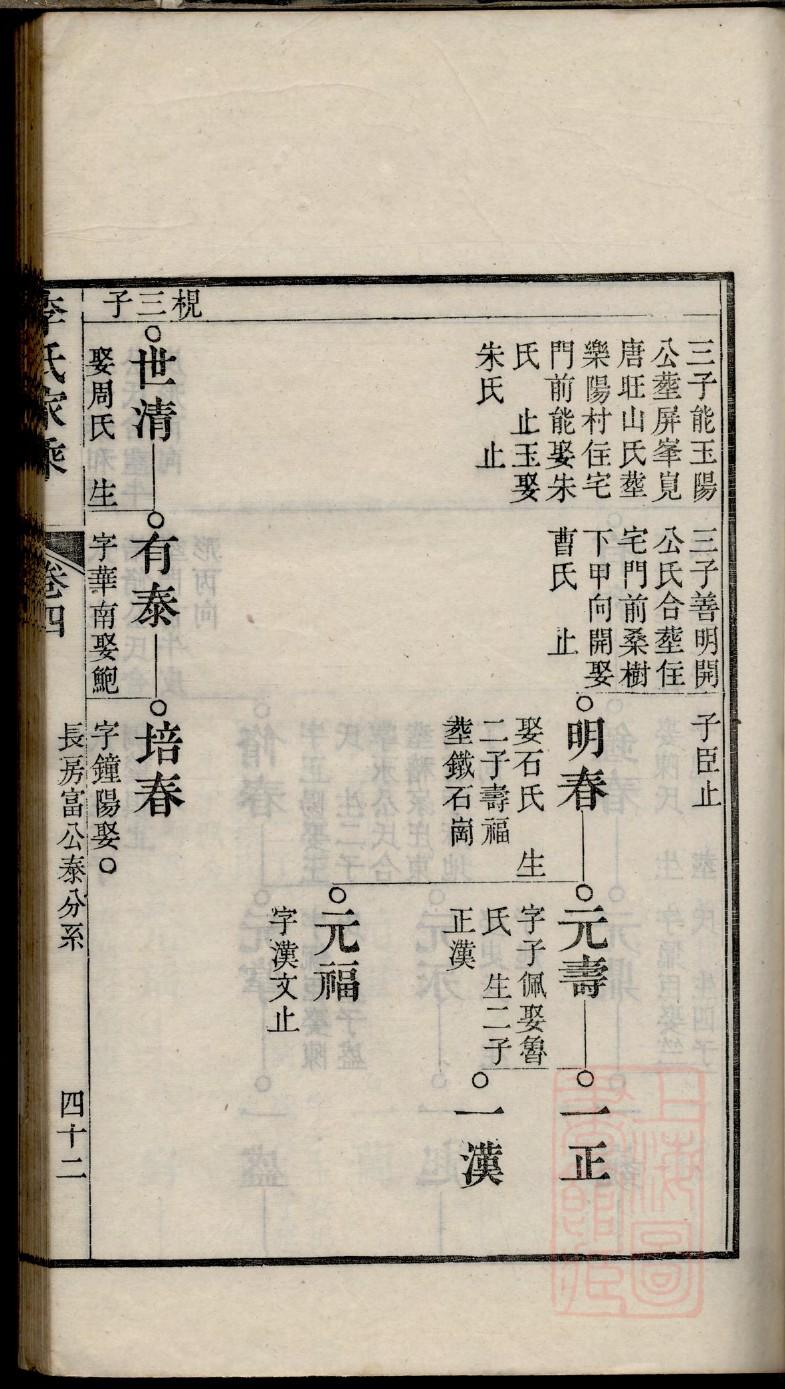 三子能玉陽
公塟屏峯見
唐旺山氏塟
樂陽村住宅
門前能娶朱
氏　止玉娶
朱氏　止
三子善明開
公氏合塟住
宅門前桑樹
下甲向開娶
曹氏　止
子臣止
明春
娶石氏　生
二子壽福
塟鐵石崗
元壽
字子佩娶魯
氏　生二子
正漢
一正
一漢
元福
字漢文止
梘三子
世清
娶周氏　生
有泰
字華南娶鮑
培春
字鐘陽娶○
李氏家乘
卷四
長房富公泰分系
四十二